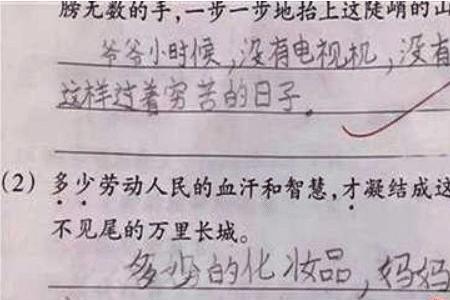 膀无数的手,一步一步地抬上这陡峭的山
爷爷小时候,没有电视机,没有
这样过着穷苦的日子。
(2) 多少劳动人民的血汗和智慧,才凝结成这
不见尾的万里长城。
多少的化妆品,妈妈